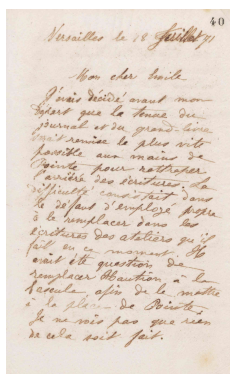 40
Versailles le 18 Juillet 71
Mon cher Emile
J'avais décidé avant mon
départ que la tenue du
journal et du grand-livre
serait remise le plus vite
possible aux mains de
Pointe pour rattraper
l'arriéré des écritures. La
difficulté consistait dans
le défaut d'employé propre
à le remplacer dans les
écritures des ateliers qu'il
fait en ce moment. Il
avait été question de
remplacer Haution à la
bascule afin de le mettre
à la place de
Je ne vois pas que rien
de cela soit fait.